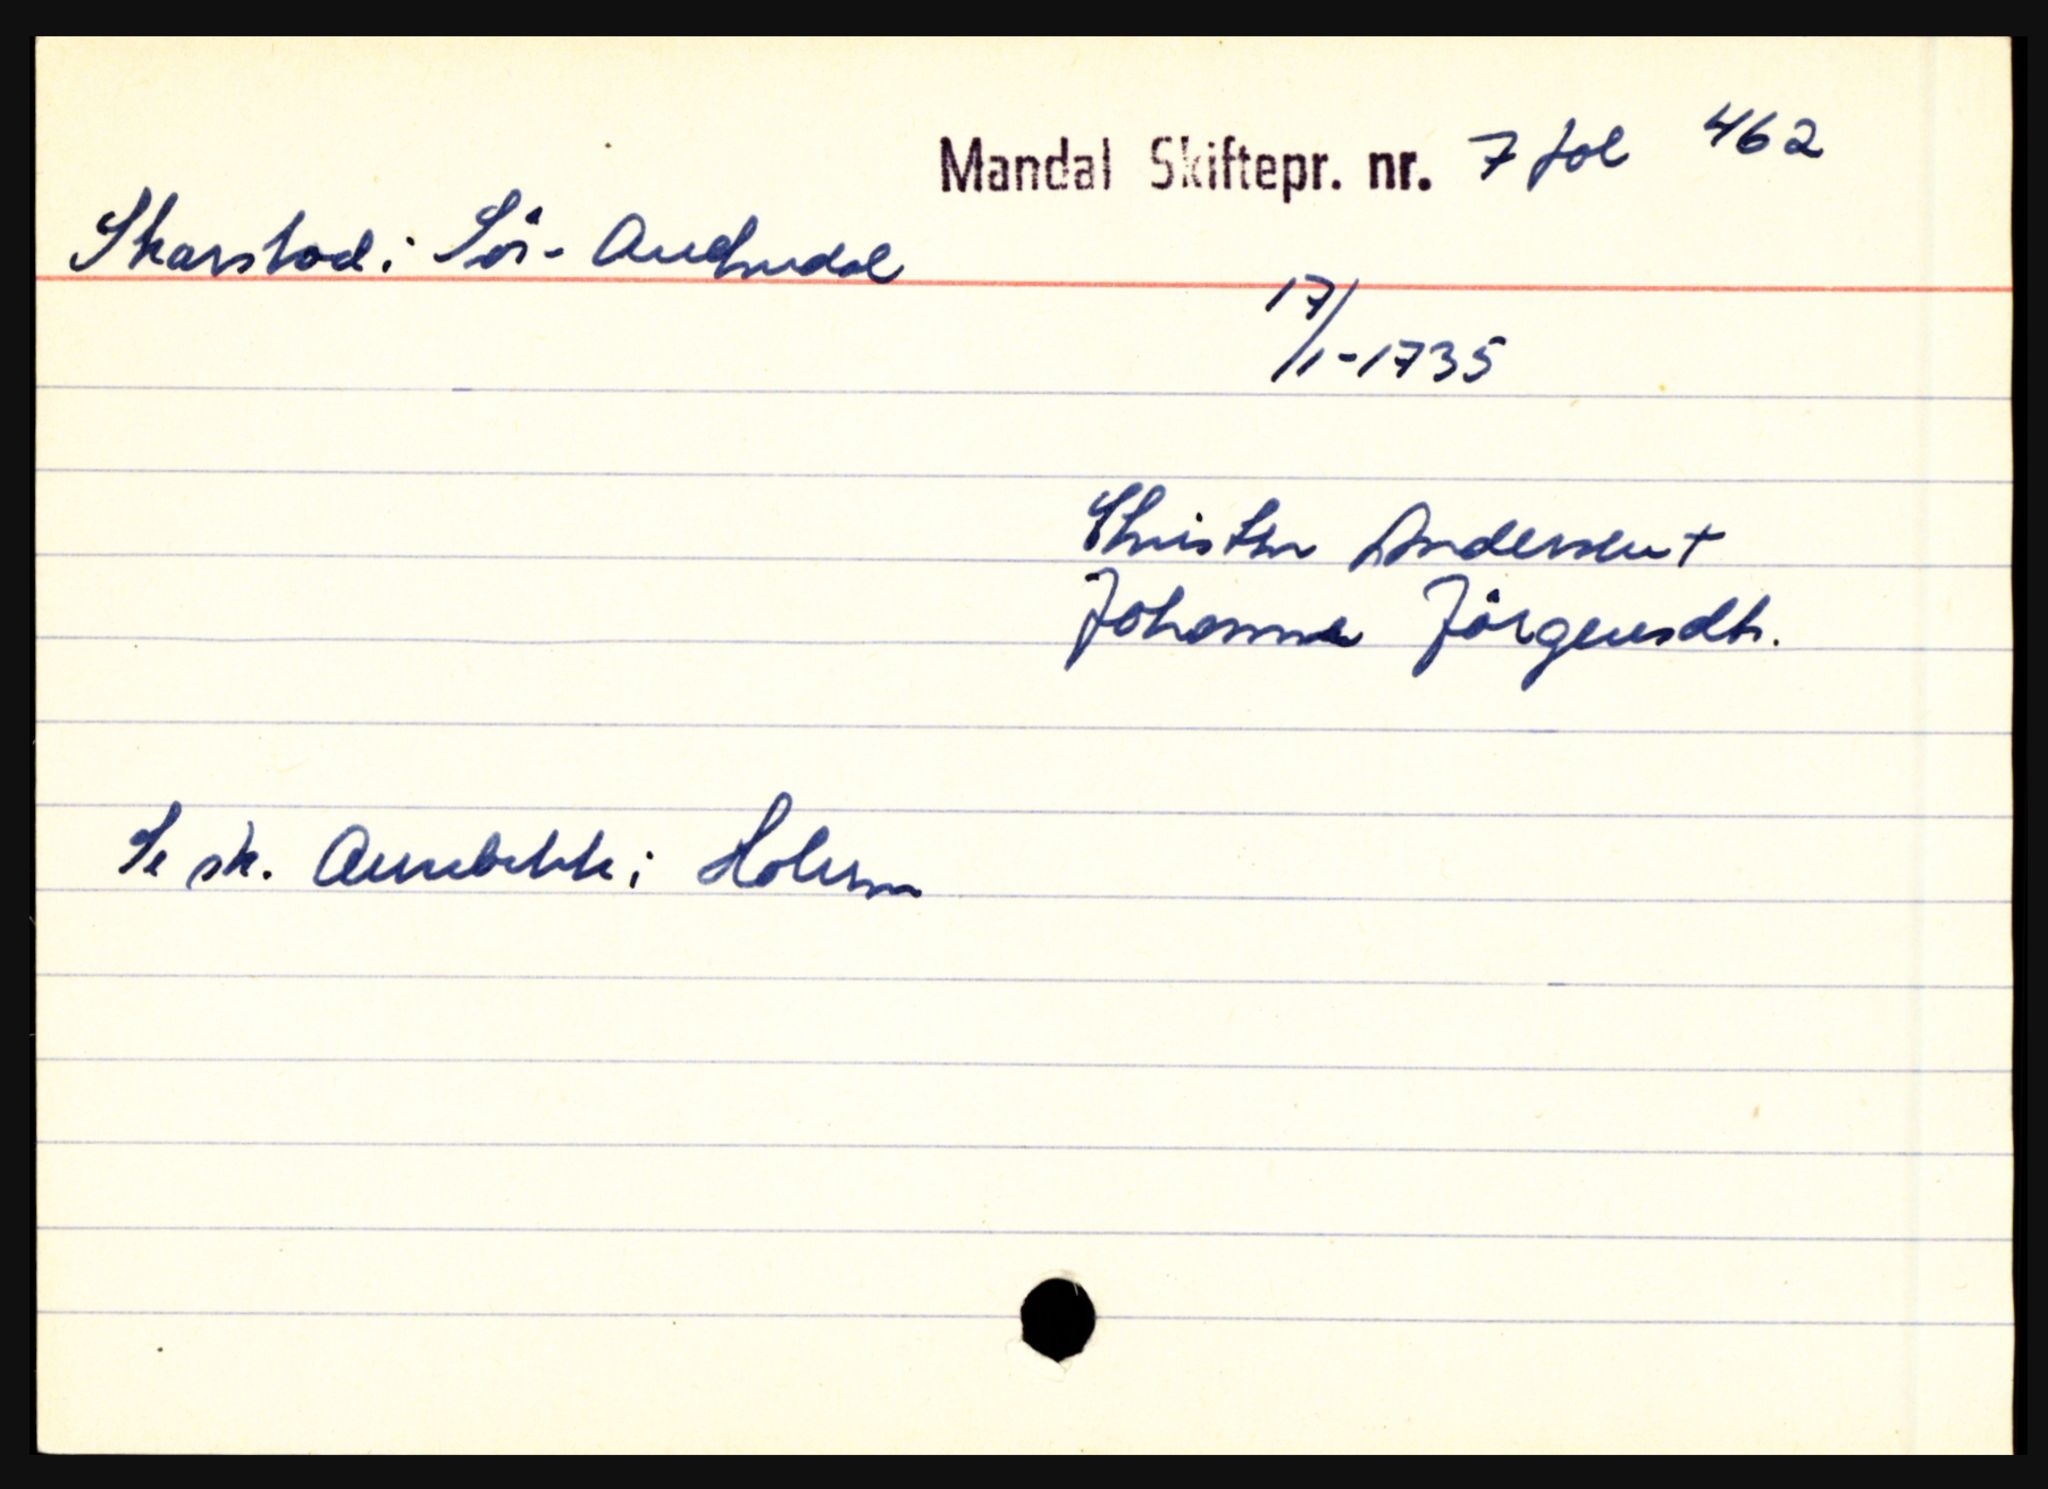 Mandal Skiftepr. nr. 7 fol 462
Skarstad i Sör-Audnedal
17/1-1735
Christen Andersen +
Johanna Jörgensdtr.
Se sk. Aunebekk i Holum